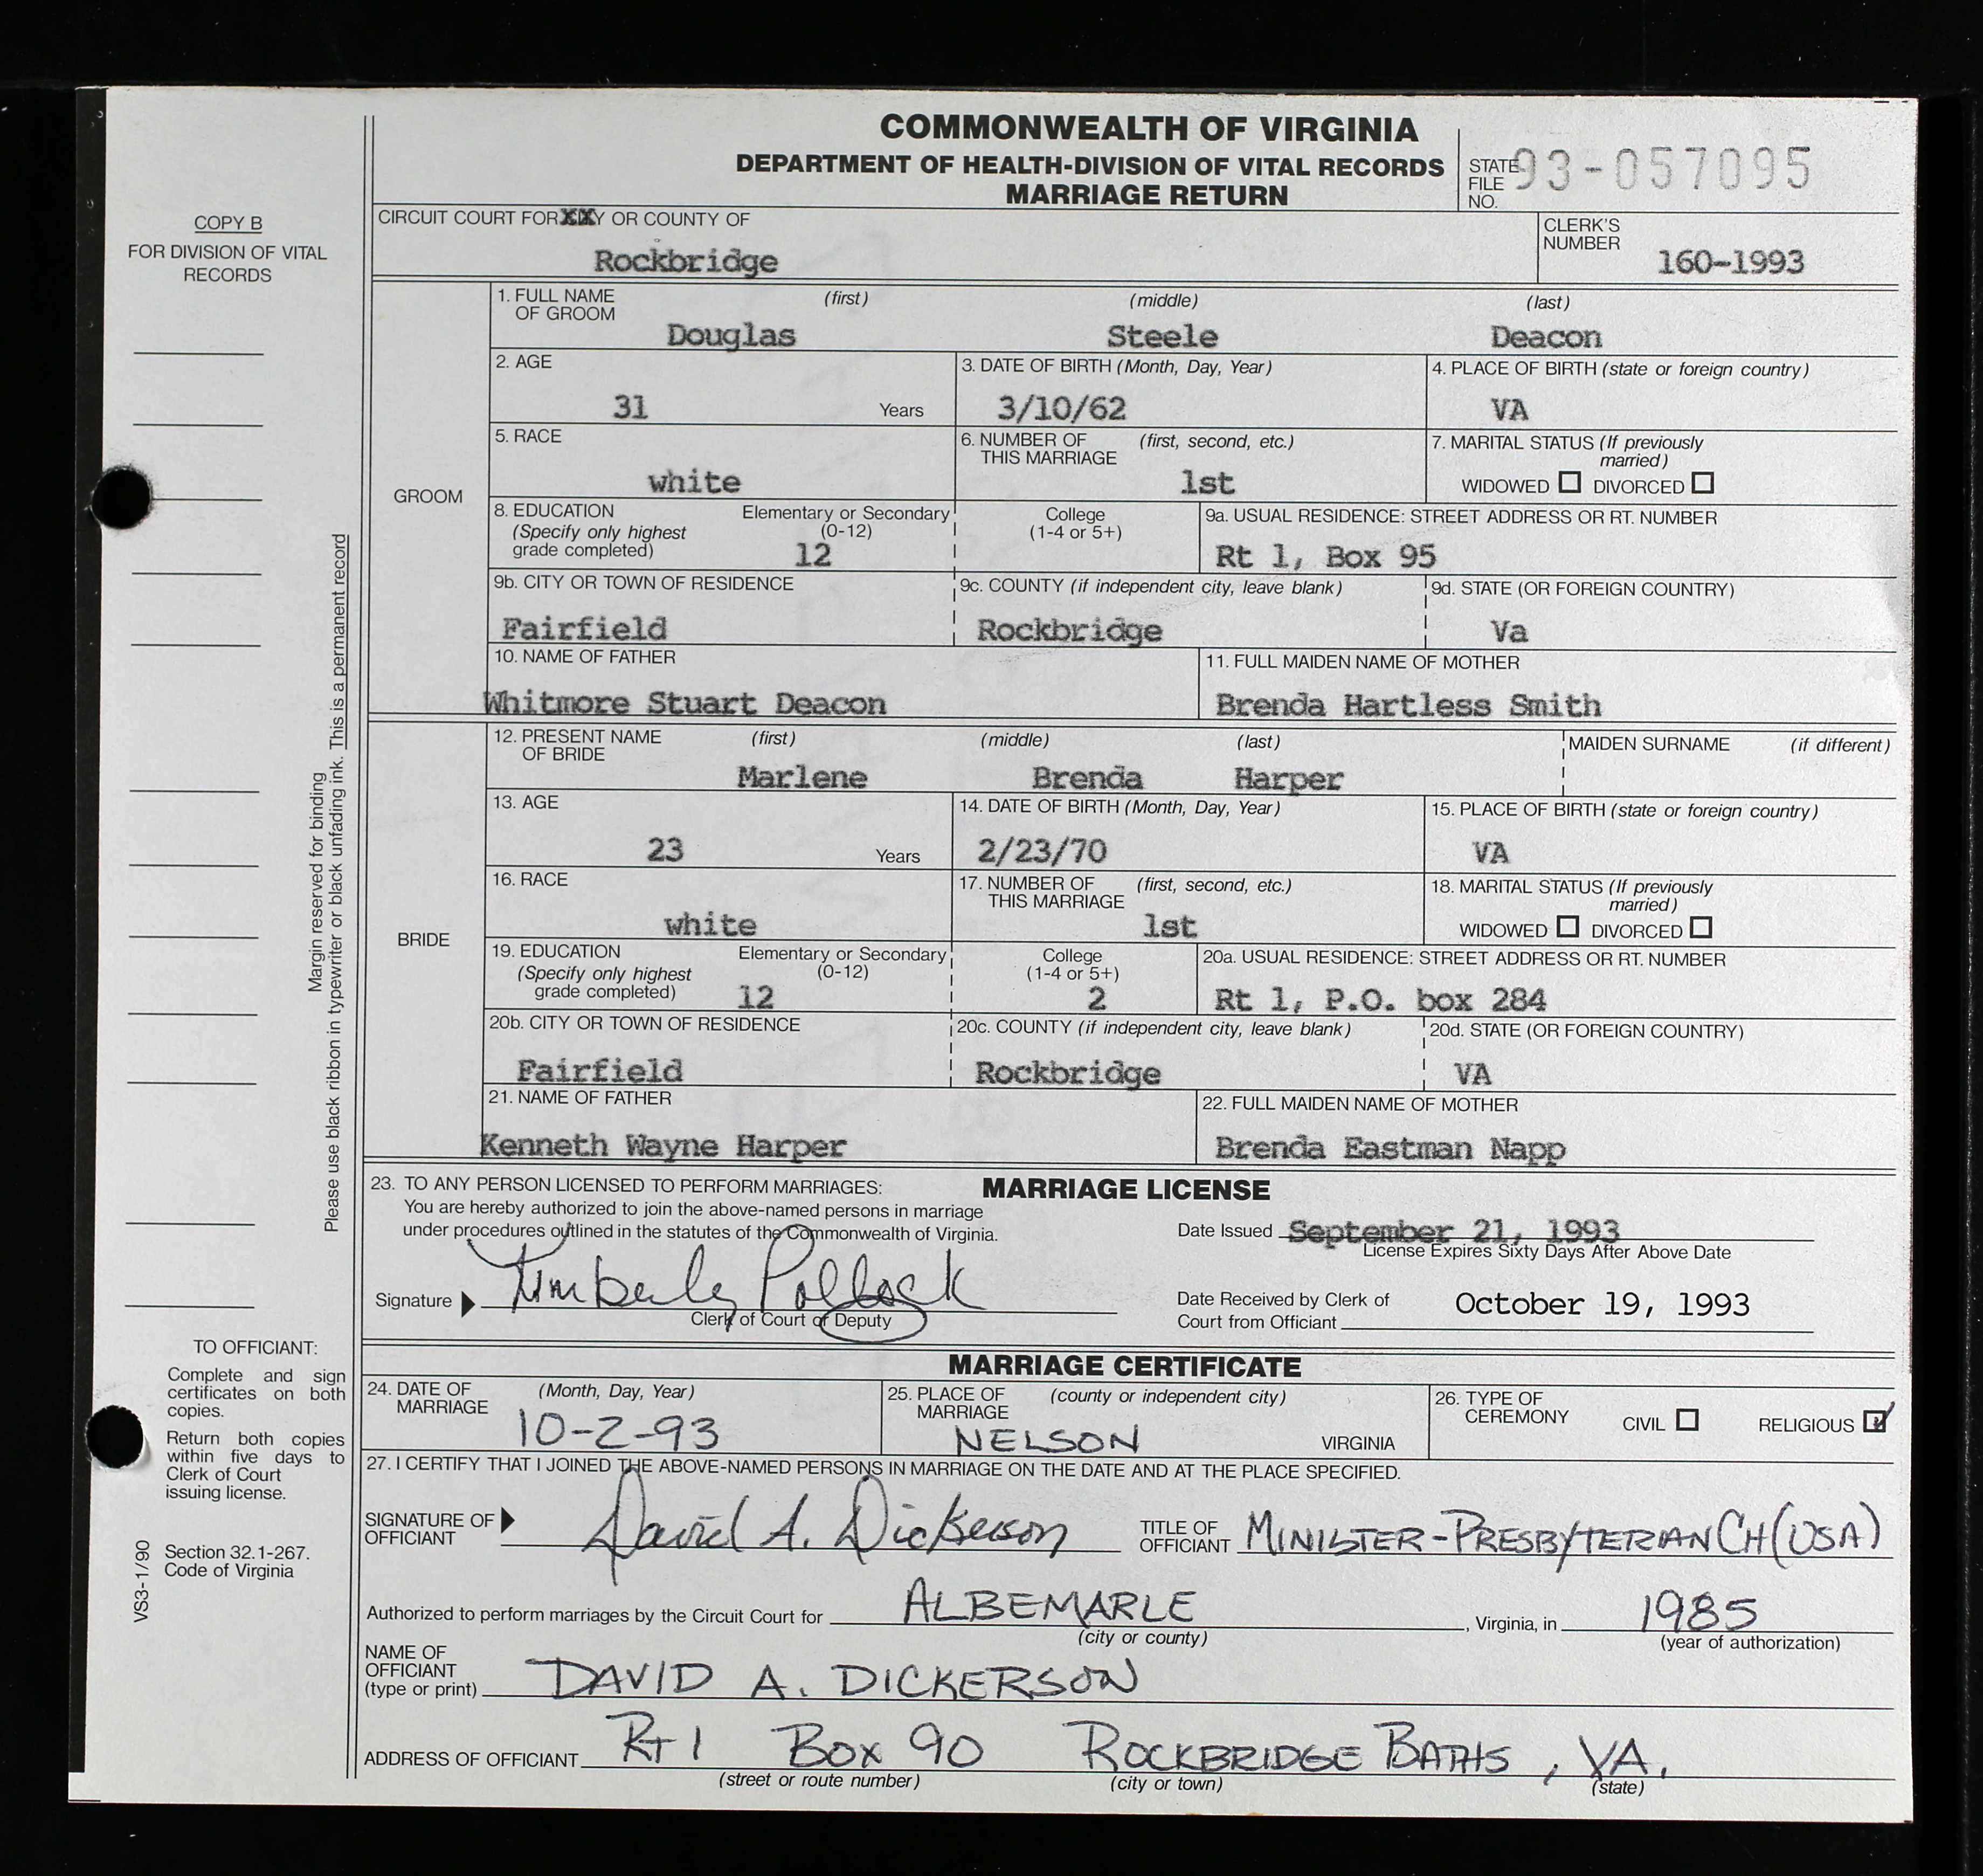 COMMONWEALTH OF VIRGINIA
DEPARTMENT OF HEALTH-DIVISION OF VITAL RECORDS
MARRIAGE RETURN
STATE FILE NO. 93-057095
COPY B
FOR DIVISION OF VITAL
RECORDS
CIRCUIT COURT FOR XXY OR COUNTY OF
Rockbridge
CLERK'S
NUMBER 160-1993
GROOM
1. FULL NAME OF GROOM (first) (middle) (last)
Douglas Steele Deacon
2. AGE 3. DATE OF BIRTH (Month, Day, Year) 4. PLACE OF BIRTH (state or foreign country)
31 Years 3/10/62 VA
5. RACE 6. NUMBER OF THIS MARRIAGE (first, second, etc.) 7. MARITAL STATUS (If previously married)
white 1st WIDOWED DIVORCED
8. EDUCATION Elementary or Secondary College 9a. USUAL RESIDENCE: STREET ADDRESS OR RT. NUMBER
(Specify only highest (0-12) (1-4 or 5+)
grade completed) 12 Rt 1, Box 95
9b. CITY OR TOWN OF RESIDENCE 9c. COUNTY (if independent city, leave blank) 9d. STATE (OR FOREIGN COUNTRY)
Fairfield Rockbridge Va
10. NAME OF FATHER 11. FULL MAIDEN NAME OF MOTHER
Whitmore Stuart Deacon Brenda Hartless Smith
BRIDE
12. PRESENT NAME OF BRIDE (first) (middle) (last) MAIDEN SURNAME (if different)
Marlene Brenda Harper
13. AGE 14. DATE OF BIRTH (Month, Day, Year) 15. PLACE OF BIRTH (state or foreign country)
23 Years 2/23/70 VA
16. RACE 17. NUMBER OF THIS MARRIAGE (first, second, etc.) 18. MARITAL STATUS (If previously married)
white 1st WIDOWED DIVORCED
19. EDUCATION Elementary or Secondary College 20a. USUAL RESIDENCE: STREET ADDRESS OR RT. NUMBER
(Specify only highest (0-12) (1-4 or 5+)
grade completed) 12 2 Rt 1, P.O. box 284
20b. CITY OR TOWN OF RESIDENCE 20c. COUNTY (if independent city, leave blank) 20d. STATE (OR FOREIGN COUNTRY)
Fairfield Rockbridge VA
21. NAME OF FATHER 22. FULL MAIDEN NAME OF MOTHER
Kenneth Wayne Harper Brenda Eastman Napp
Margin reserved for binding
Please use black ribbon in typewriter or black unfading ink. This is a permanent record
23. TO ANY PERSON LICENSED TO PERFORM MARRIAGES: MARRIAGE LICENSE
You are hereby authorized to join the above-named persons in marriage
under procedures outlined in the statutes of the Commonwealth of Virginia.
Date Issued September 21, 1993
License Expires Sixty Days After Above Date
Signature Kimberly Pollock
Clerk of Court or Deputy
Date Received by Clerk of
Court from Officiant October 19, 1993
MARRIAGE CERTIFICATE
24. DATE OF MARRIAGE (Month, Day, Year) 25. PLACE OF MARRIAGE (county or independent city) 26. TYPE OF CEREMONY CIVIL RELIGIOUS
10-2-93 NELSON VIRGINIA
27. I CERTIFY THAT I JOINED THE ABOVE-NAMED PERSONS IN MARRIAGE ON THE DATE AND AT THE PLACE SPECIFIED.
SIGNATURE OF OFFICIANT David A. Dickerson TITLE OF OFFICIANT MINISTER-PRESBYTERIAN CH (USA)
Authorized to perform marriages by the Circuit Court for ALBEMARLE, Virginia, in 1985
(city or county) (year of authorization)
NAME OF
OFFICIANT
(type or print) DAVID A. DICKERSON
ADDRESS OF OFFICIANT RT 1 BOX 90 ROCKBRIDGE BATHS, VA.
(street or route number) (city or town) (state)
TO OFFICIANT:
Complete and sign
certificates on both
copies.
Return both copies
within five days to
Clerk of Court
issuing license.
Section 32.1-267.
Code of Virginia
VS3-1/90